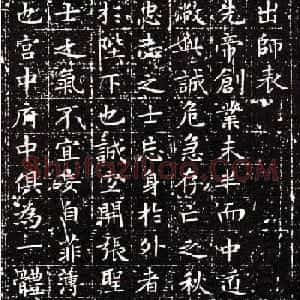 出師表
先帝創業未半而中道
敝誠危急存亡之秋
忠志之士忘身於外者
於陛下也誠宜開張聖
士之氣不宜妄自菲薄
也宮中府中俱為一體